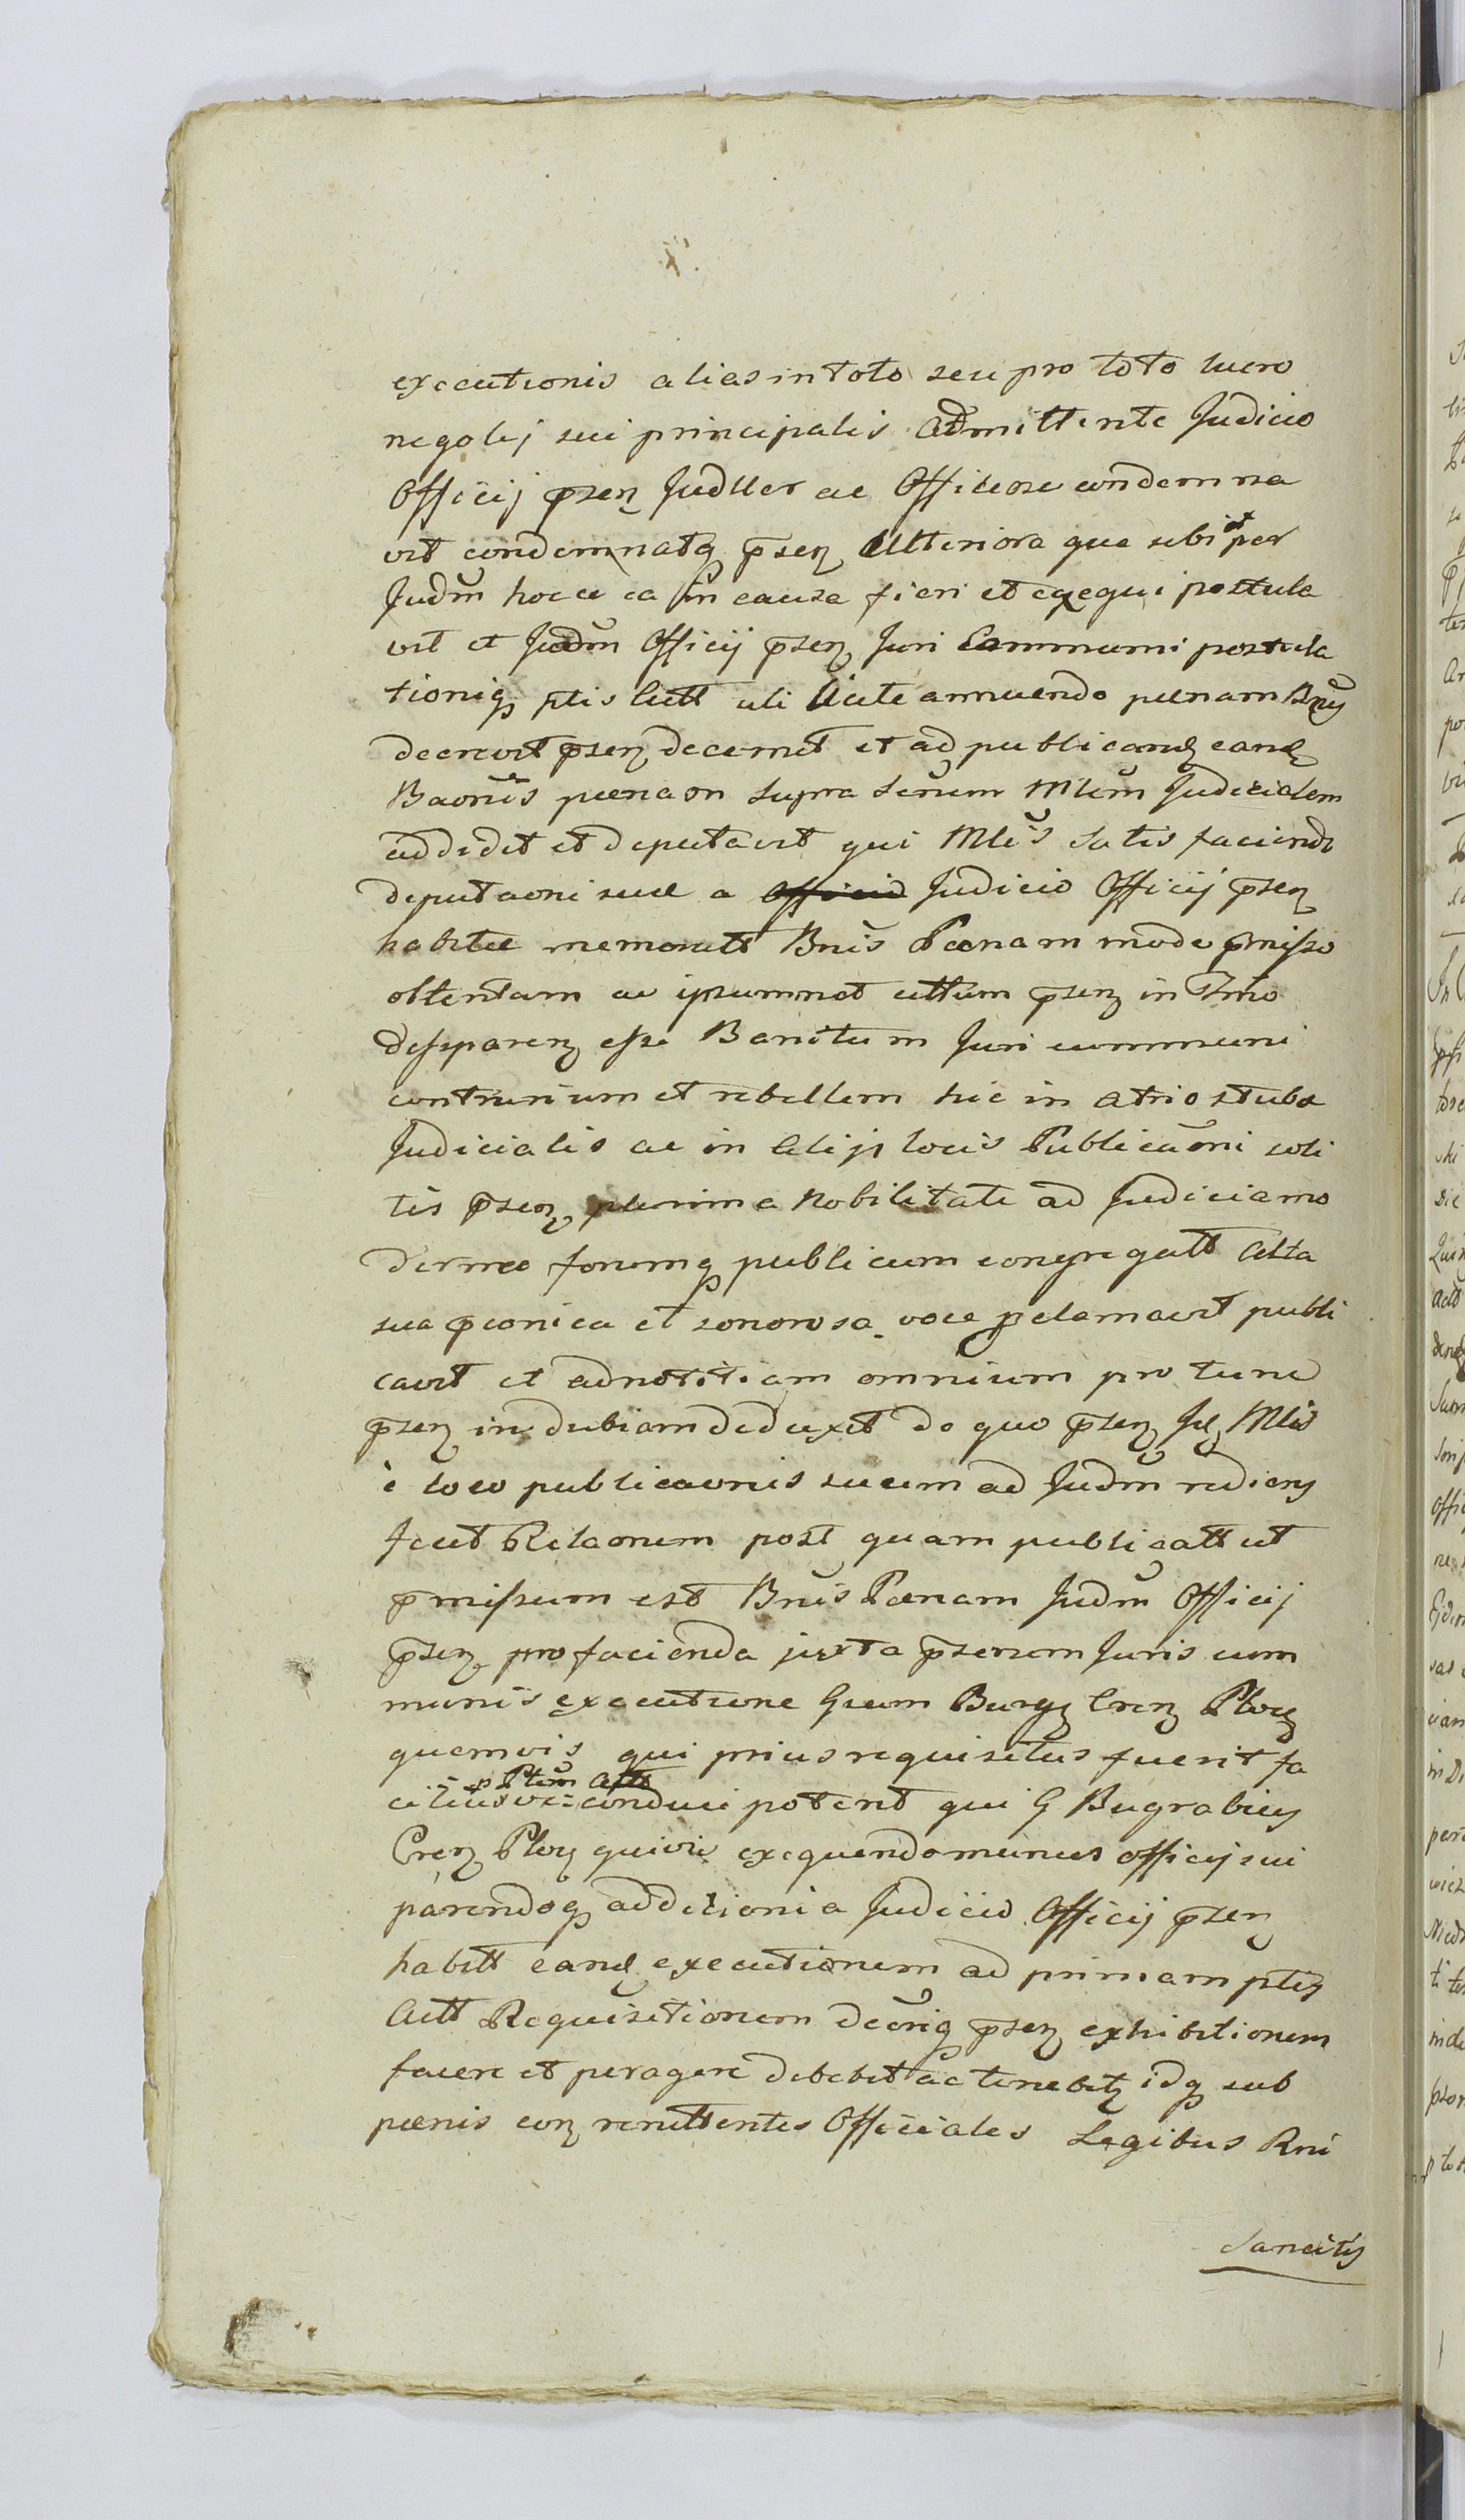 executionis alias in toto seu pro toto lucro
negotij sui principalis admittente Judicio
Officij psen Judller ac Officiose condemna
vit condemnatq psen Ulteriora que sibi et per
Judm hocce ea in causa fieri et exequi postula
vit et Judm Officij psen Juri Communi postula
tioniq ptis Actt uti licite annuendo pœnam Bnis
decrevit psen decernit et ad publicand eand
Baonis pœnam supra Mlem Judicialem
addidit et deputavit qui Mlis satis faciendo
deputaoni suæ a Officio Judicio Officij psen
habitæ memoratt Bnis Pœnam modo pmisso
obtentam ac ipsummet cittum psen in Tmo
desparen esse Banitum Juri communi
contrarium et rebellem hic in atrio stubæ
Judicialis ac in alijs locis Publicaoni soli
tis psen plurima Nobilitate ad Judicia mo
derna forumq publicum congregatt Alta
sua pconica et sonorosa voce pclamavit publi
cavit et ad notitiam omnium pro tunc
psen indubiam deduxit de quo psen Mlis
è loco publicaonis suum ad Judm rediens
fecit Relaonem post quam publicatt ut
pmissum est Bnis Pœnam Judm Officij
psen pro facienda juxta pserem Juris com
munis executione Gsum Burg Cren Plocs
quemvis qui prius requisitus fuerit fa
p Ptem Actt
ciliusve conduci poterit qui G Bugrabius
Cren Ploc quivis exequendo munus officij sui
parendoq additioni a Judicio Officij psen
habitt eand executionem ad primam ptis
Actt Requisitionem Decrіq psen exhibitionem
facere et peragere debebit ac tenebit idq sub
pœnis con renittentes Officiales Legibus Rni
Sancitis